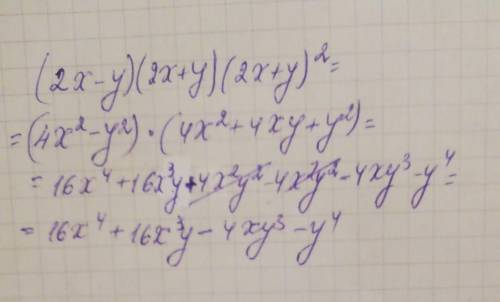 (2x-y)(2x+y)(2x+y)²=
=(4x²-y²)·(4x²+4xy+y²)=
=16x⁴+16x³y+4x²y²-4x²y²-4xy³-y⁴=
=16x⁴+16x³y-4xy³-y⁴